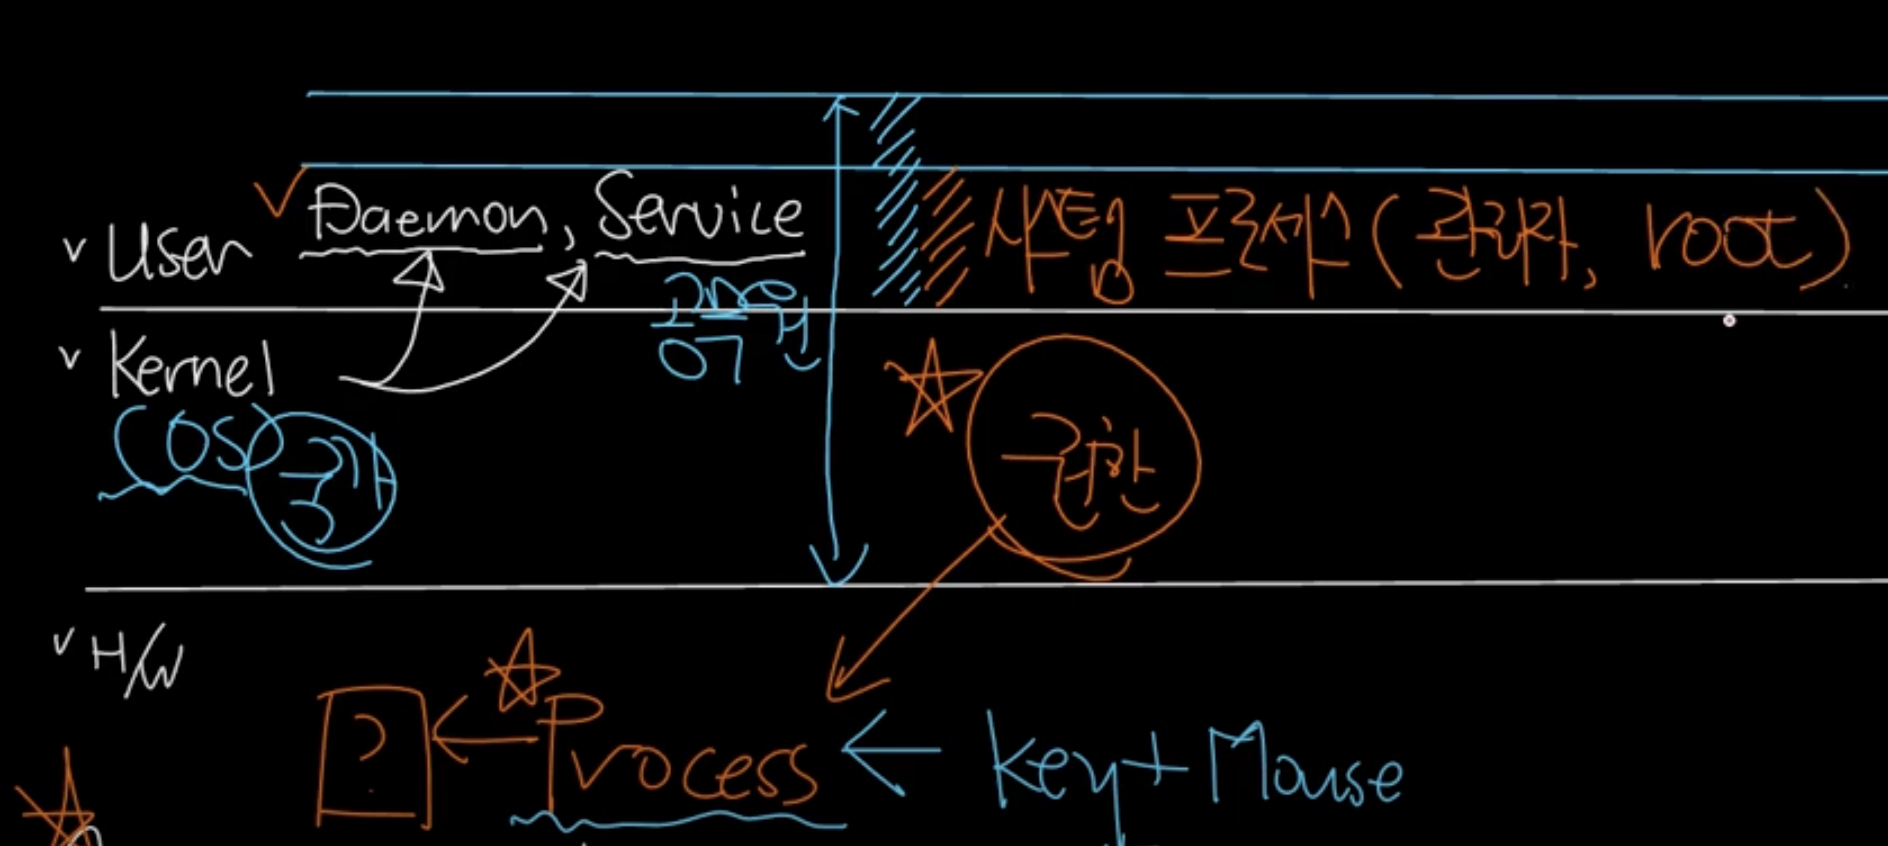 v User ✓ Daemon, Service 시스템 프로세스(관리자, root)
v Kernel
(OS) 국가 권한
v H/W
? ← Process ← Key+Mouse